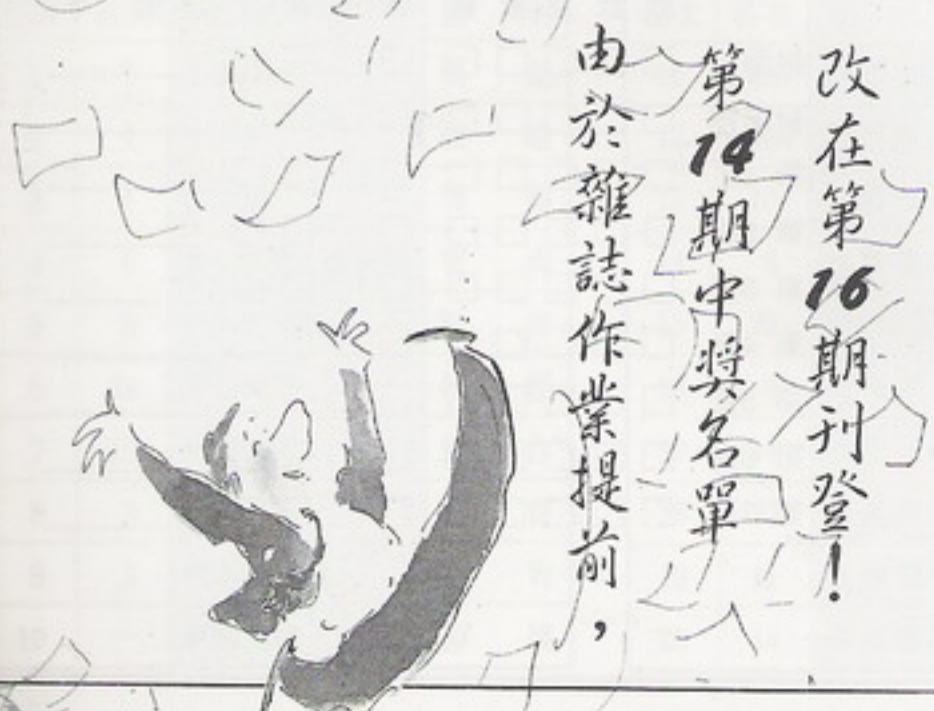 由於雜誌作業提前，
第14期中獎名單
改在第16期刊登！